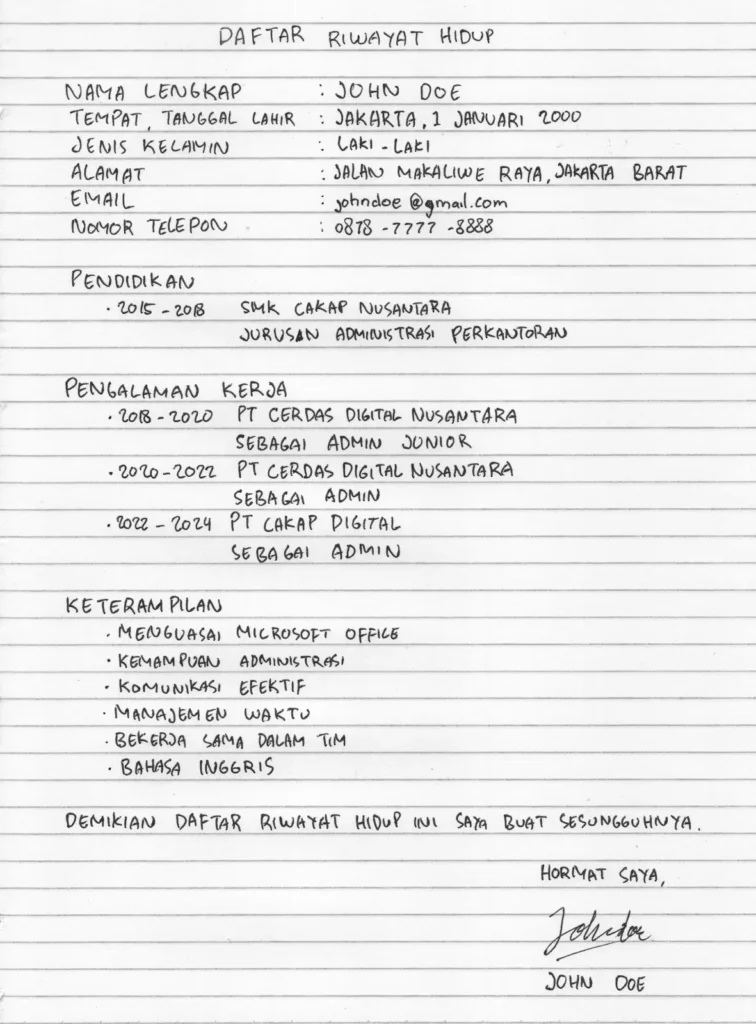 DAFTAR RIWAYAT HIDUP
NAMA LENGKAP : JOHN DOE
TEMPAT, TANGGAL LAHIR : JAKARTA, 1 JANUARI 2000
JENIS KELAMIN : LAKI - LAKI
ALAMAT : JALAN MAKALIWE RAYA, JAKARTA BARAT
EMAIL : johndoe@gmail.com
NOMOR TELEPON : 0878 - 7777 - 8888
PENDIDIKAN
· 2015 - 2018 SMK CAKAP NUSANTARA
JURUSAN ADMINISTRASI PERKANTORAN
PENGALAMAN KERJA
· 2018 - 2020 PT CERDAS DIGITAL NUSANTARA
SEBAGAI ADMIN JUNIOR
· 2020 - 2022 PT CERDAS DIGITAL NUSANTARA
SEBAGAI ADMIN
· 2022 - 2024 PT CAKAP DIGITAL
SEBAGAI ADMIN
KETERAMPILAN
· MENGUASAI MICROSOFT OFFICE
· KEMAMPUAN ADMINISTRASI
· KOMUNIKASI EFEKTIF
· MANAJEMEN WAKTU
· BEKERJA SAMA DALAM TIM
· BAHASA INGGRIS
DEMIKIAN DAFTAR RIWAYAT HIDUP INI SAYA BUAT SESUNGGUHNYA.
HORMAT SAYA,
Johndoe
JOHN DOE